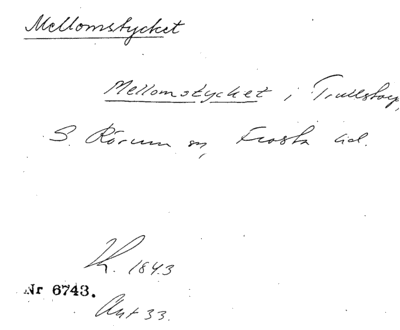 Mellomstycket
Mellomstycket i Trullstorp,
S. Rörum sn, Frosta hd.
Kt. 1843
Nr 6743.
Akt 33.